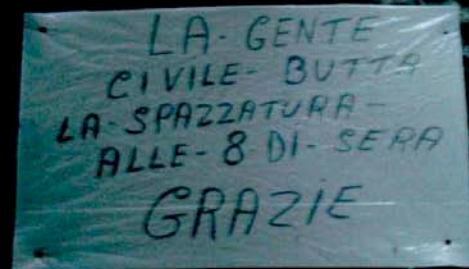 LA-GENTE
CIVILE-BUTTA
LA-SPAZZATURA-
ALLE-8-DI-SERA
GRAZIE